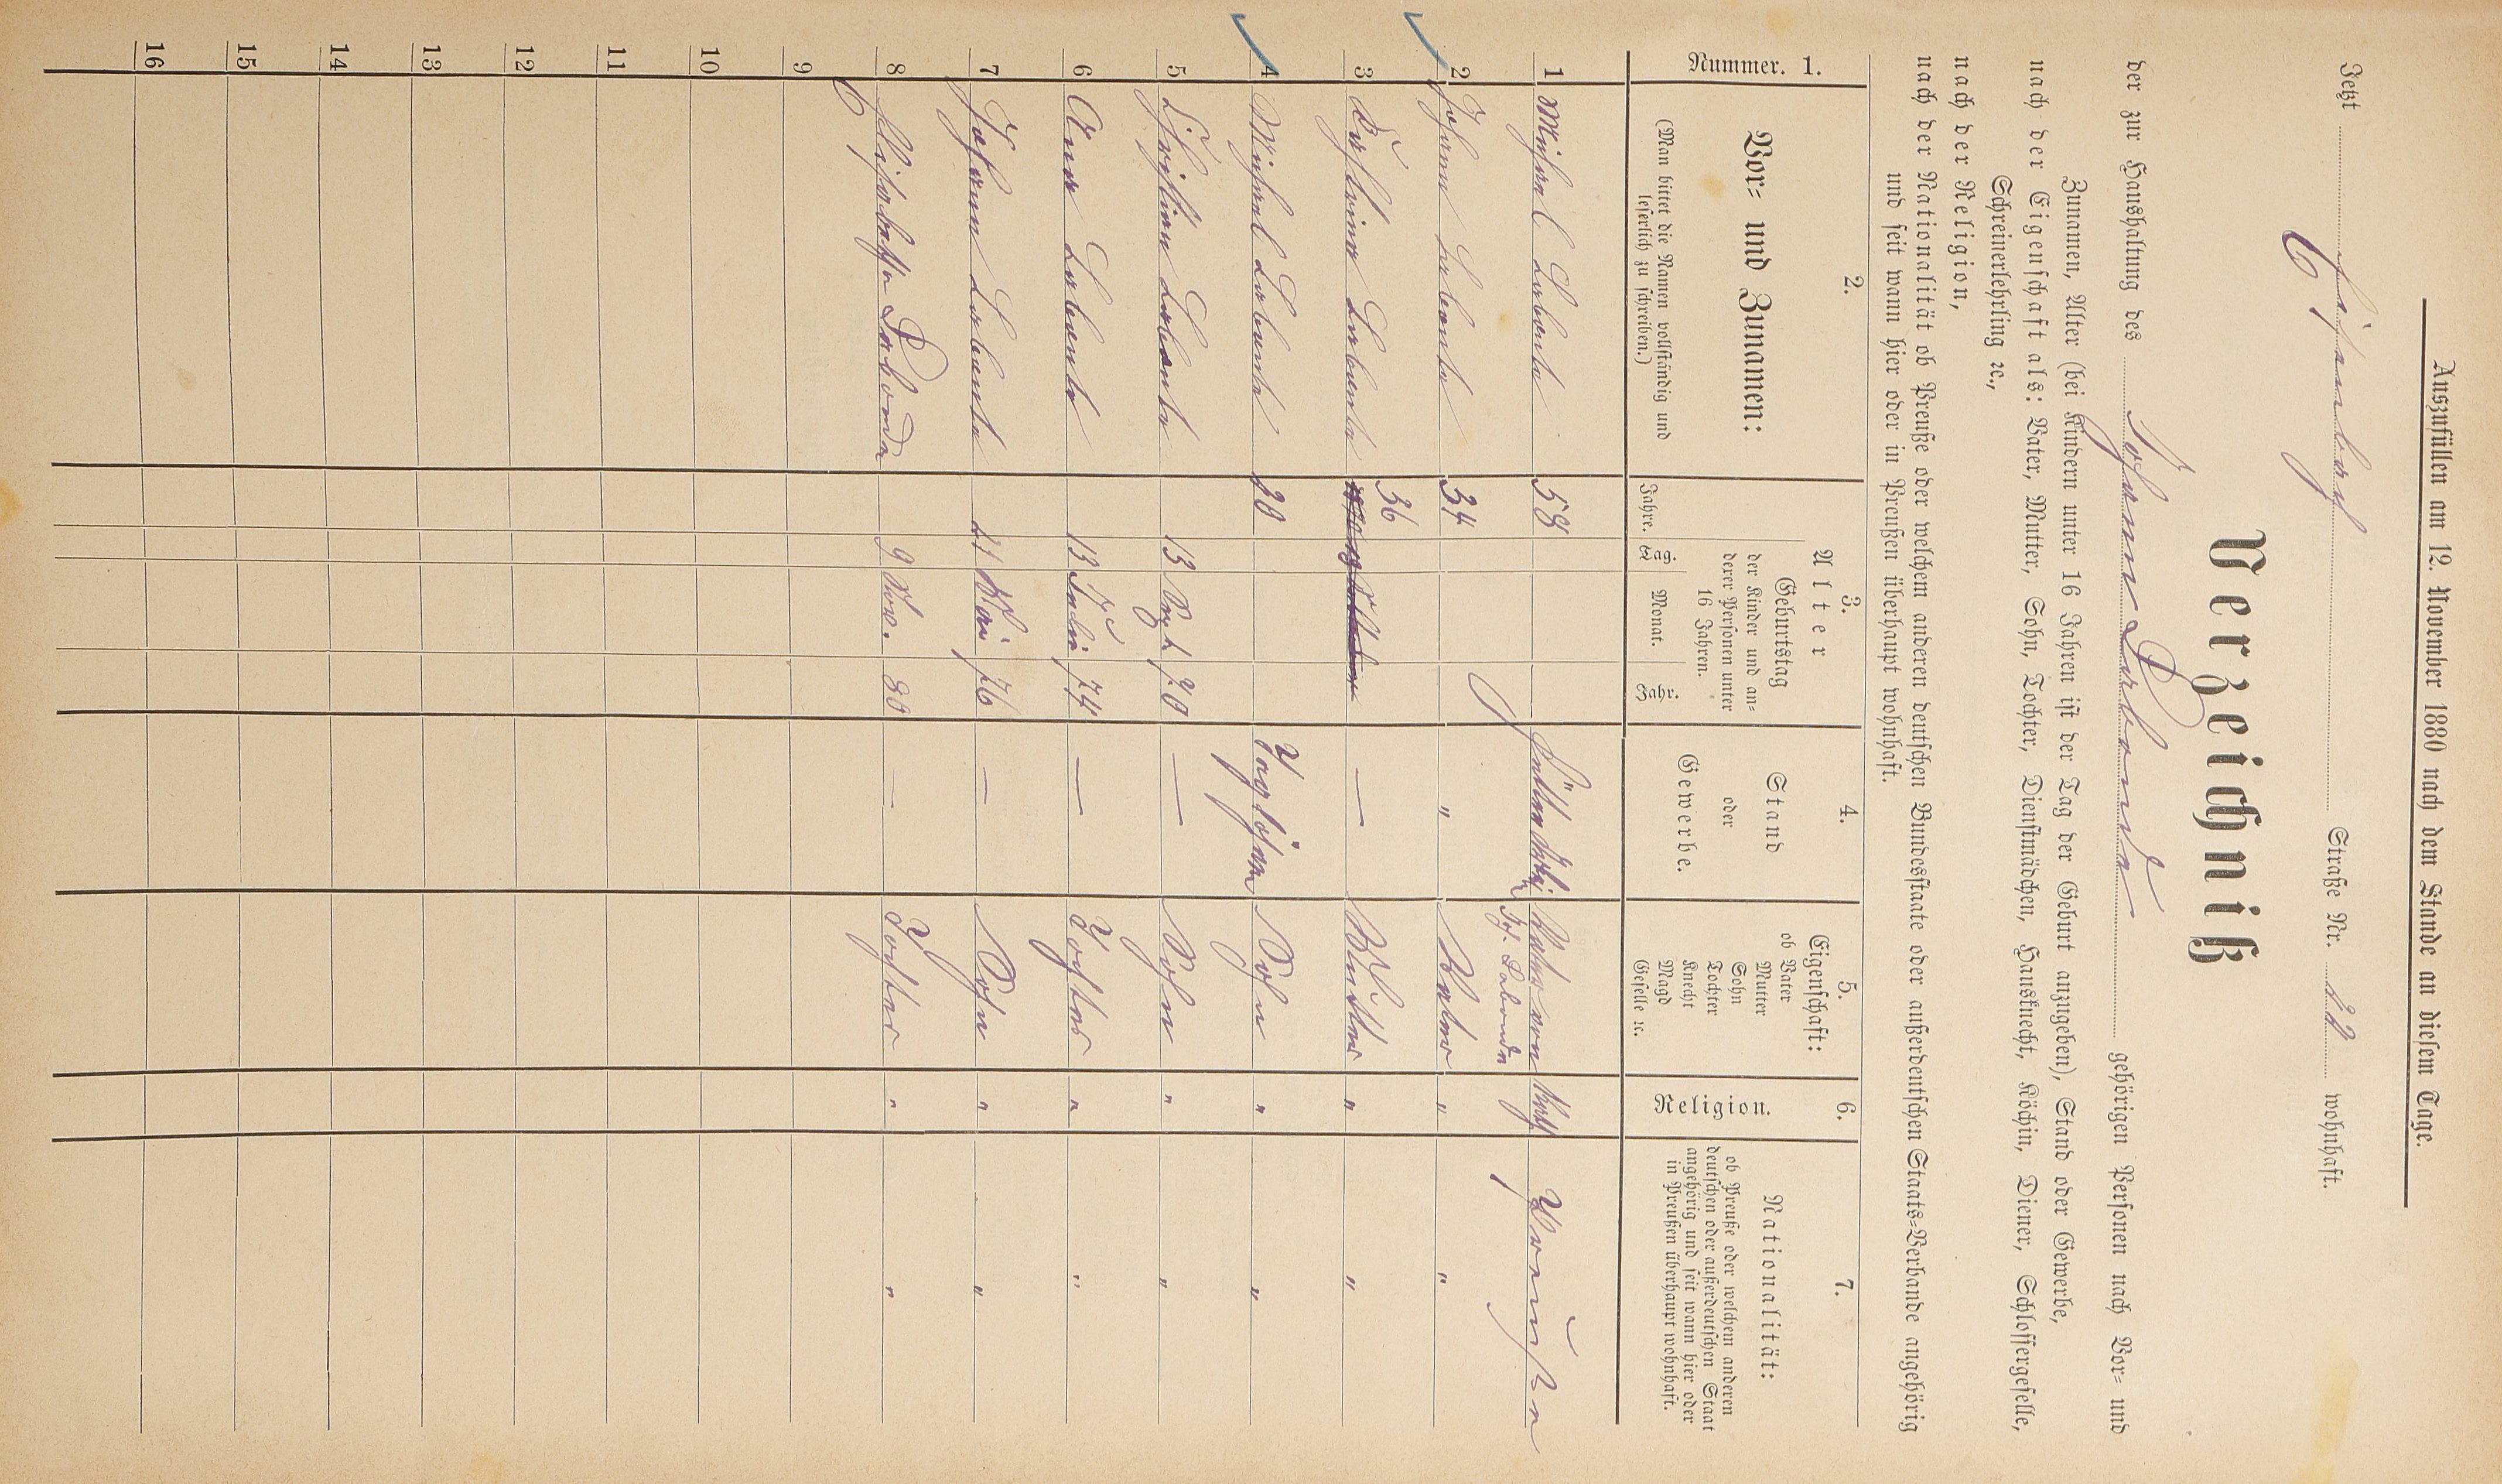 Auszufüllen am 12. November 1880 nach dem Stande an diesem Tage.
Jetzt Straße Nr. 32 wohnhaft.
Verzeichniß
der zur Haushaltung des Johann gehörigen Personen nach Vor= und
Zunamen, Alter (bei Kindern unter 16 Jahren ist der Tag der Geburt anzugeben), Stand oder Gewerbe,
nach der Eigenschaft als: Vater, Mutter, Sohn, Tochter, Dienstmädchen, Hausknecht, Köchin, Diener, Schlossergeselle,
Schreinerlehrling ꝛc.,
nach der Religion,
nach der Nationalität ob Preuße oder welchem anderen deutschen Bundesstaate oder außerdeutschen Staats=Verbande angehörig
und seit wann hier oder in Preußen überhaupt wohnhaft.
Nummer. 1.
2.
Vor= und Zunamen:
(Man bittet die Namen vollständig und
leserlich zu schreiben.)
3.
Alter
Jahre.
Geburtstag
der Kinder und an=
derer Personen unter
16 Jahren.
Tag. Monat. Jahr.
4.
Stand
oder
Gewerbe.
5.
Eigenschaft:
ob Vater
Mutter
Sohn
Tochter
Knecht
Magd
Geselle ꝛc.
6.
Religion.
7.
Nationalität:
ob Preuße oder welchem anderen
deutschen oder außerdeutschen Staat
angehörig und seit wann hier oder
in Preußen überhaupt wohnhaft.
1 Michael 58 Vater von Kath Preußen
Joh.
2 Johann 34 " Vater " "
36
3 — Mutter " "
4 Michael 20 Taglöhner Sohn " "
5 Christian 13 Sept 70 — Sohn " "
6 Anna 13 74 — Tochter " "
7 Johann 21 Mai 76 — Sohn " "
8 Elisabetha 9 80 — Tochter " "
9
10
11
12
13
14
15
16